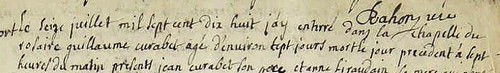 le seize juillet mil sept cent dix huit jay enterré dans la chapelle du
rosaire guillaume curabet agé denuiron sept jours mort le jour precedent a sept
heures du matin presents jean curabet son pere et anne giraudain